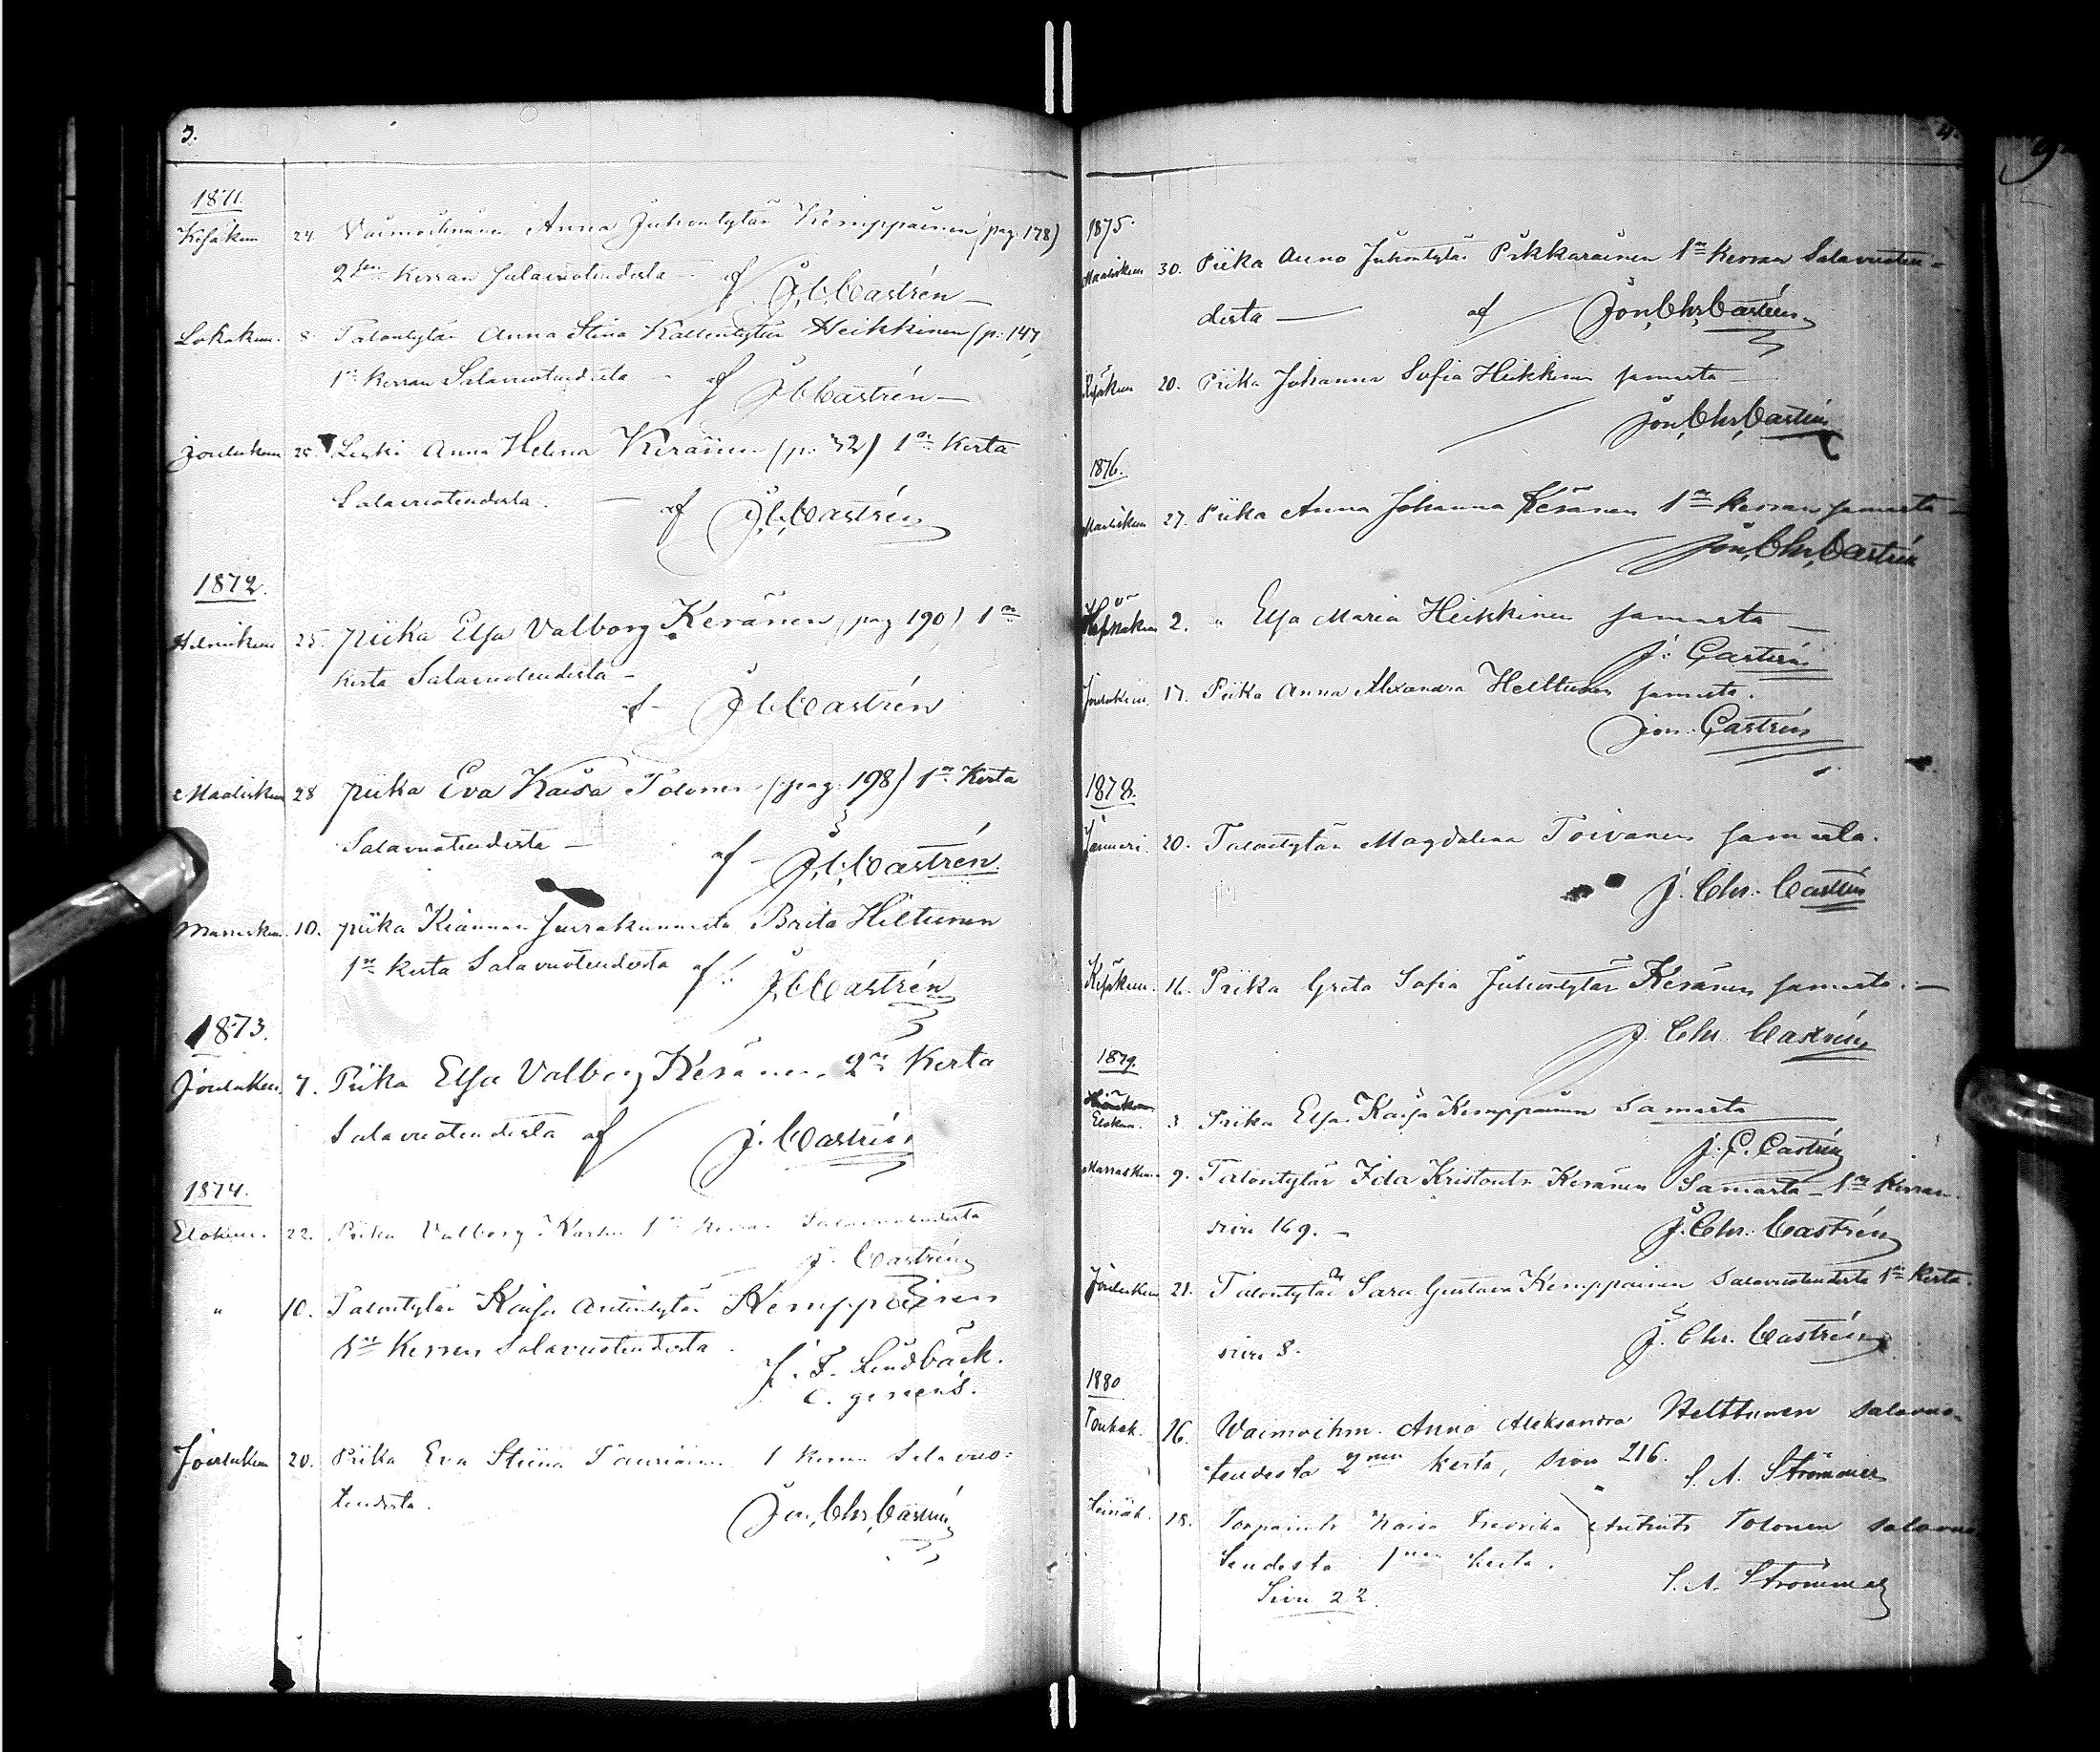 3.
1871.
Kesäkuu 24. Vaimoihminen Anna Juhontytär Kemppainen (pag. 178)
2sen Kerran Salavuoteudesta – af
J. C. Castrén –
Lokakuu. 8. Talontytär Anna Stina Kallentytär Heikkinen (p. 147
1n Kerran Salavuoteudesta – af J C Castrén –
Joulukuu 25. Leski Anna Helena Keränen (p. 32) 1n Kerta
Salavuoteudesta. – af J. C. Castrén
1872.
Helmikuu 25. piika Elsa Valborg Keränen, pag 190) 1n
kerta Salavuoteudesta –
af – J C Castrén
Maaliskuu 28 piika Eva Kaisa Tolonen (pag. 198) 1n Kerta
Salavuoteudesta – af – J. C. Castrén.
Marraskuu. 10. piika Kiannan seurakunnasta Brita Hiltunen
1n kerta Salavuoteudesta af: J C Castrén
1873.
Jouluku. 7. Piika Elsa Valborg Keränen. 2n Kerta
Salavuoteudesta af J. Castrén
1874.
Elokuu. 22. Piika Valborg 1n kerran Salavuoteudesta
J. Castrén
" 10. Talontytär Kaisa Antintytär Kemppainen
1n Kerran Salavuoteudesta.
J. F. Lindbäck.
Joulukuu 20. Piika Eva Stiina 1 kerran Salavuo=
teudesta. Jon, Chr, Castrén
4.
9
1875.
Maaliskuu 30. Piika Anna Juhontytär Pikkarainen 1n Kerran Salavuoteu-
desta — af Jon, Chr, Castrén
Kesäkuu 20. Piika Johanna Sofia Heikkinen samasta —
Jon, Chr, Castrén
1876.
Maaliskuu 27. Piika Anna Johanna Keränen 1n kerran samasta –
Jon, Chr, Castrén
2. " Elsa Maria Heikkinen samasta —
J: Castrén
Joulukuu. 17. Piika Anna Alexandra Helttunen samasta.
Jon. Castrén
1878.
Januari. 20. Talontytär Magdalena Toivanen samasta.
J. Chr. Castrén
Kesäkuu. 16. Piika Greta Sofia Juhontytär Keränen samasta. –
J. Chr. Castrén
1879.
Elokuu. 3 Piika Elsa Kaisa Kemppainen Samasta
J. C. Castrén
Marraskuu. 9. Talontytär Ida Kristontr Keränen Samasta – 1n Kerran.
sivu 169. – J. Chr. Castrén
Joulukuu 21. Talontytär Sara Gustava Kemppainen Salavuoteudesta 1n Kerta.
sivu 8. J. Chr. Castrén
1880
Toukok. 16. Waimoihm. Anna Aleksandra Helttunen salavuo-
teudesta 2nen kerta, sivu 216.
S. A. Strömmer
Heinäk. 18. Kaisa Fredrika Antintr Tolonen salavuo
teudesta 1nen kerta.
Sivu 22.
S. A. Strömmer